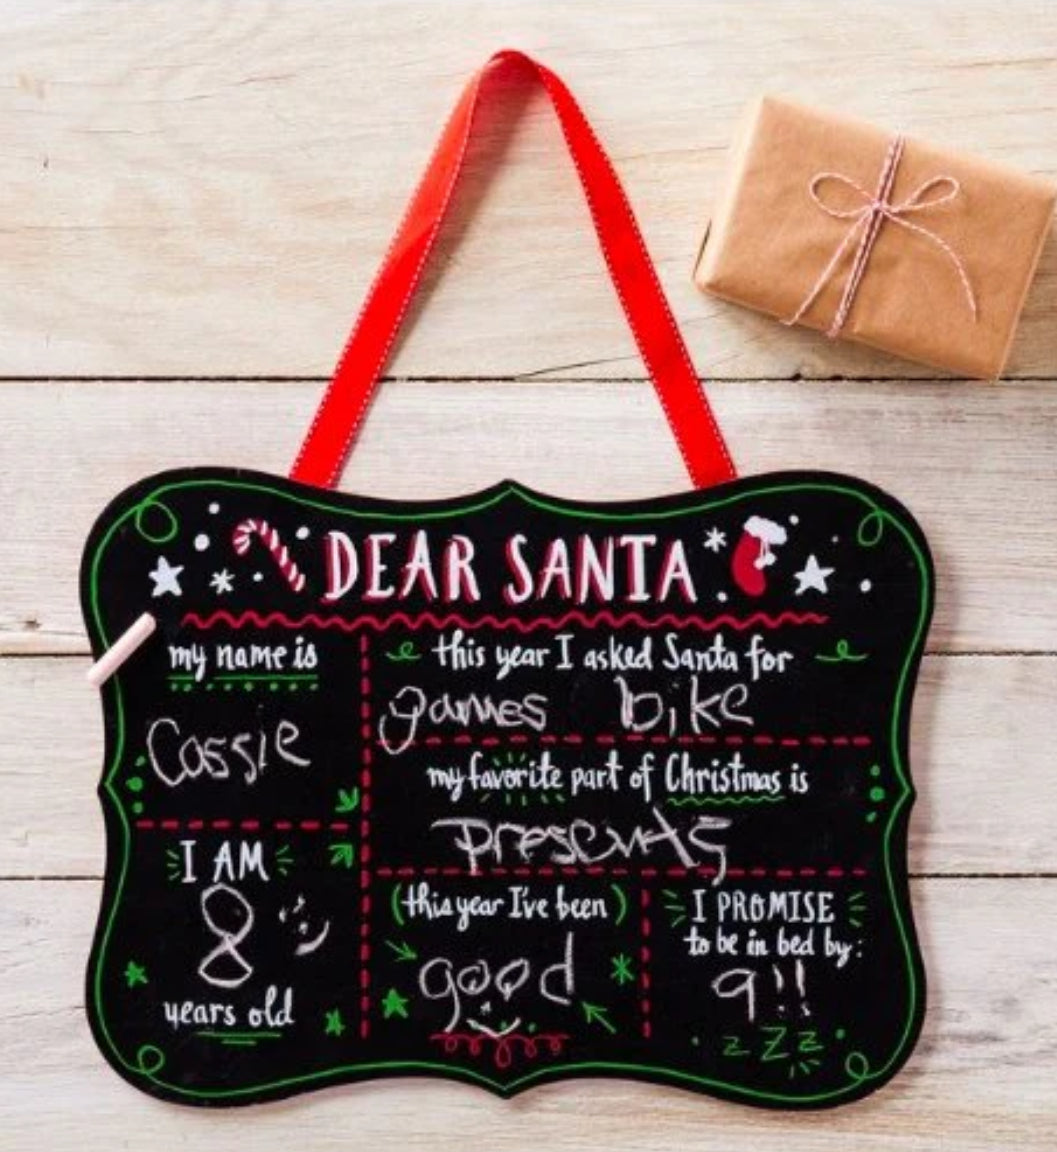 DEAR SANTA
my name is
Cassie
I AM
8
years old
this year I asked Santa for
games bike
my favorite part of Christmas is
presents
(this year I've been)
good
I PROMISE
to be in bed by:
9!!
z Z z